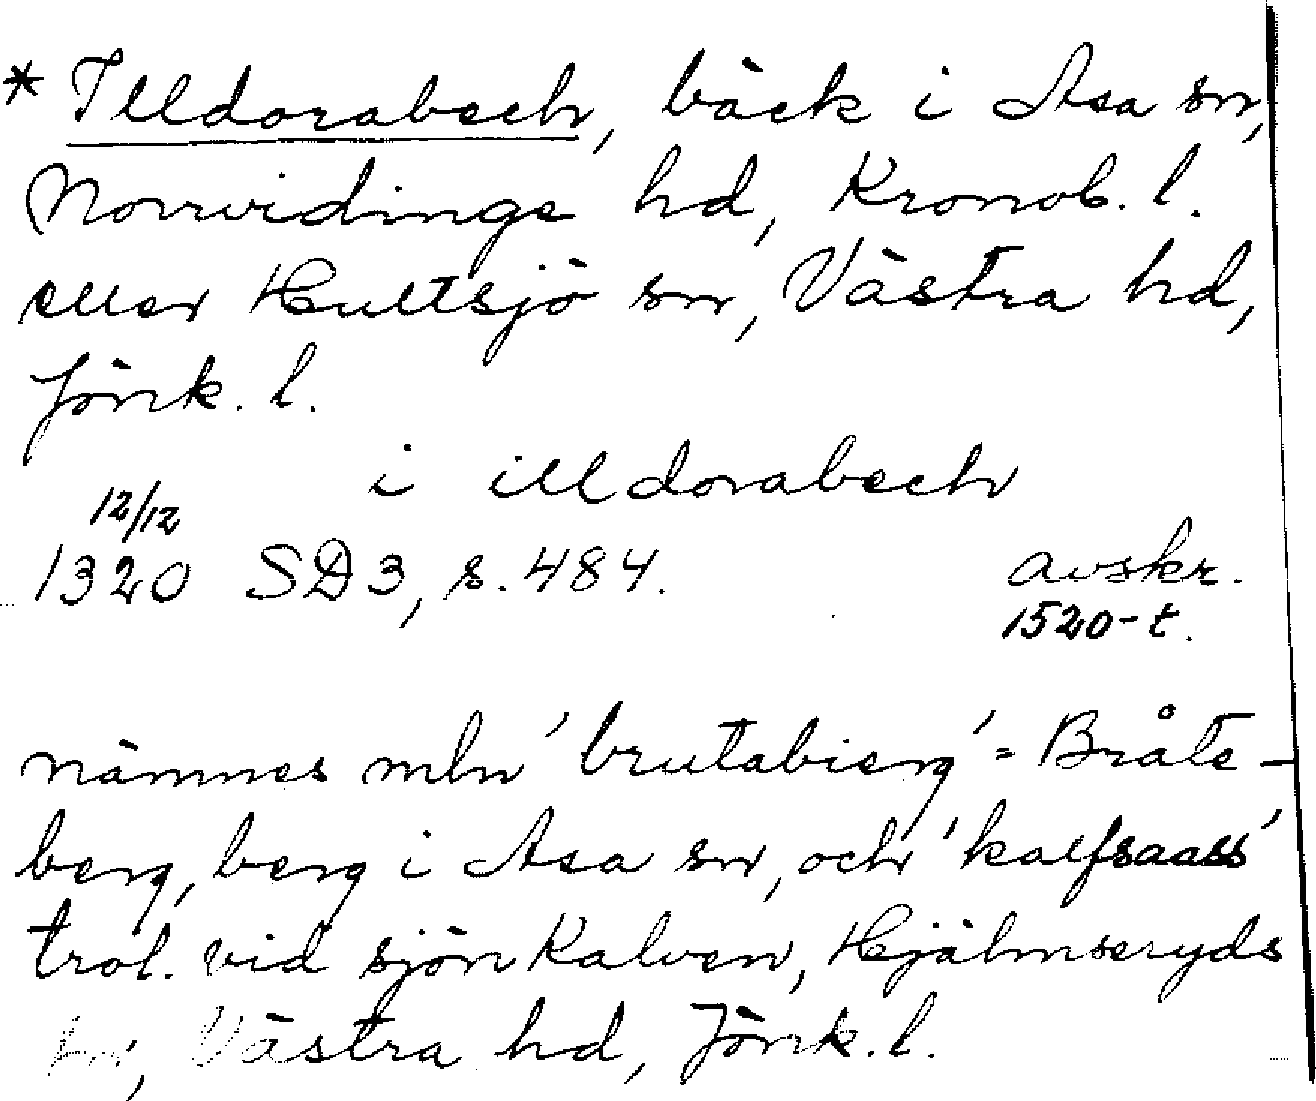 * Illdorabech, bäck i Asa sn,
Norrvidinge hd, Kronob. l.
eller Hultsjö sn, Västra hd,
Jönk. l.
i illdorabech
12/12
1320 SD3, s. 484. avskr.
1520-t.
nämnes mln 'brutabierg' = Bråte-
berg, berg i Asa sn, och 'kalfsaass'
trol. vid sjön Kalven, Hjälmseryds
sn, Västra hd, Jönk. l.